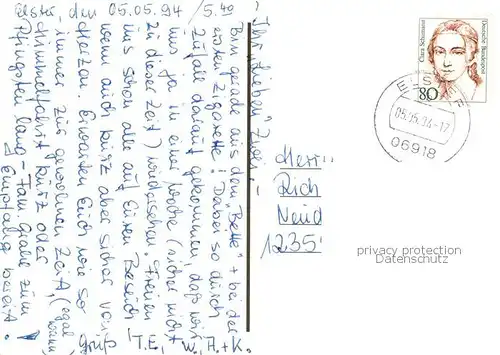 Elster, den 05.05.94 / 5.49
"Ihr Lieben" Zwei! -
Bin gerade aus dem "Bette" + bei der
ersten Zigarette! Dabei so durch
Zufall darauf gekommen, daß wir
uns ja in einer Woche (sicher nicht
zu dieser Zeit) wiedersehen. Freuen
uns schon alle auf Euren Besuch
wenn auch kurz aber sicher voller
Herzen. Erwarten Euch wie so
immer zur gewohnten Zeit, (egal wann
Himmelfahrt kurz oder
Pfingsten lang - Fam. zum
Empfang bereit!
Gruß T.E., W., A. + K.
Herr
Rich
Neid
1235
Clara Schumann
Deutsche Bundespost
80
05.05.94-12
06918
privacy protection
Datenschutz